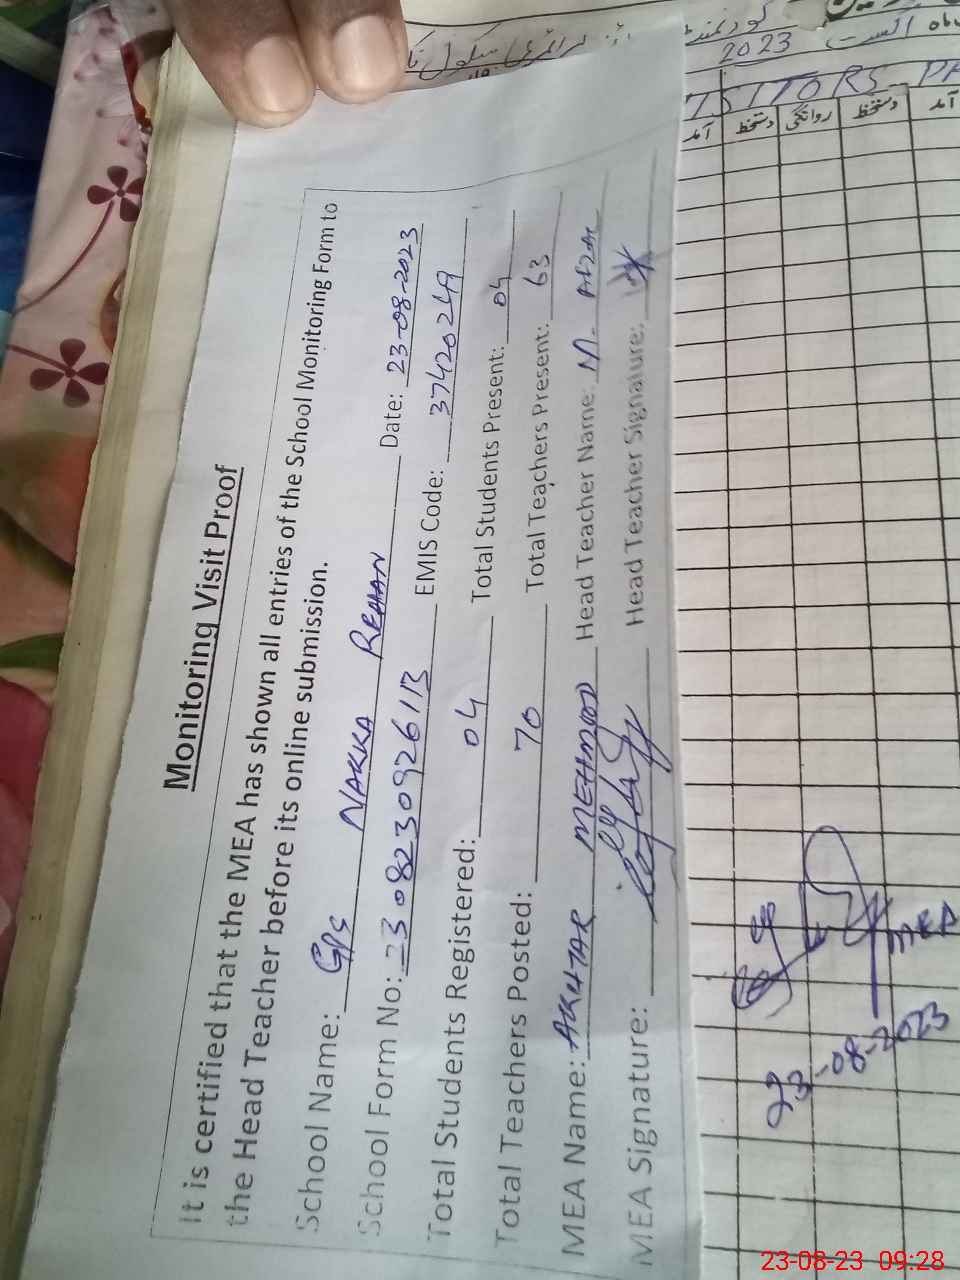 Monitoring Visit Proof
It is certified that the MEA has shown all entries of the School Monitoring Form to
the Head Teacher before its online submission.
School Name: GPS NAKKA REHAN Date: 23-08-2023
School Form No: 230823092613 EMIS Code: 37420249
Total Students Registered: 04 Total Students Present: 04
Total Teachers Posted: 70 Total Teachers Present: 63
MEA Name: AKHTAR MEHMOOD Head Teacher Name: M. Afzal
MEA Signature: Head Teacher Signature:
گورنمنٹ پرائمری سکول
ماہ اگست 2023
VISITORS
آمد دستخط روانگی دستخط آمد
MEA
23-08-2023
23-08-23 09:28